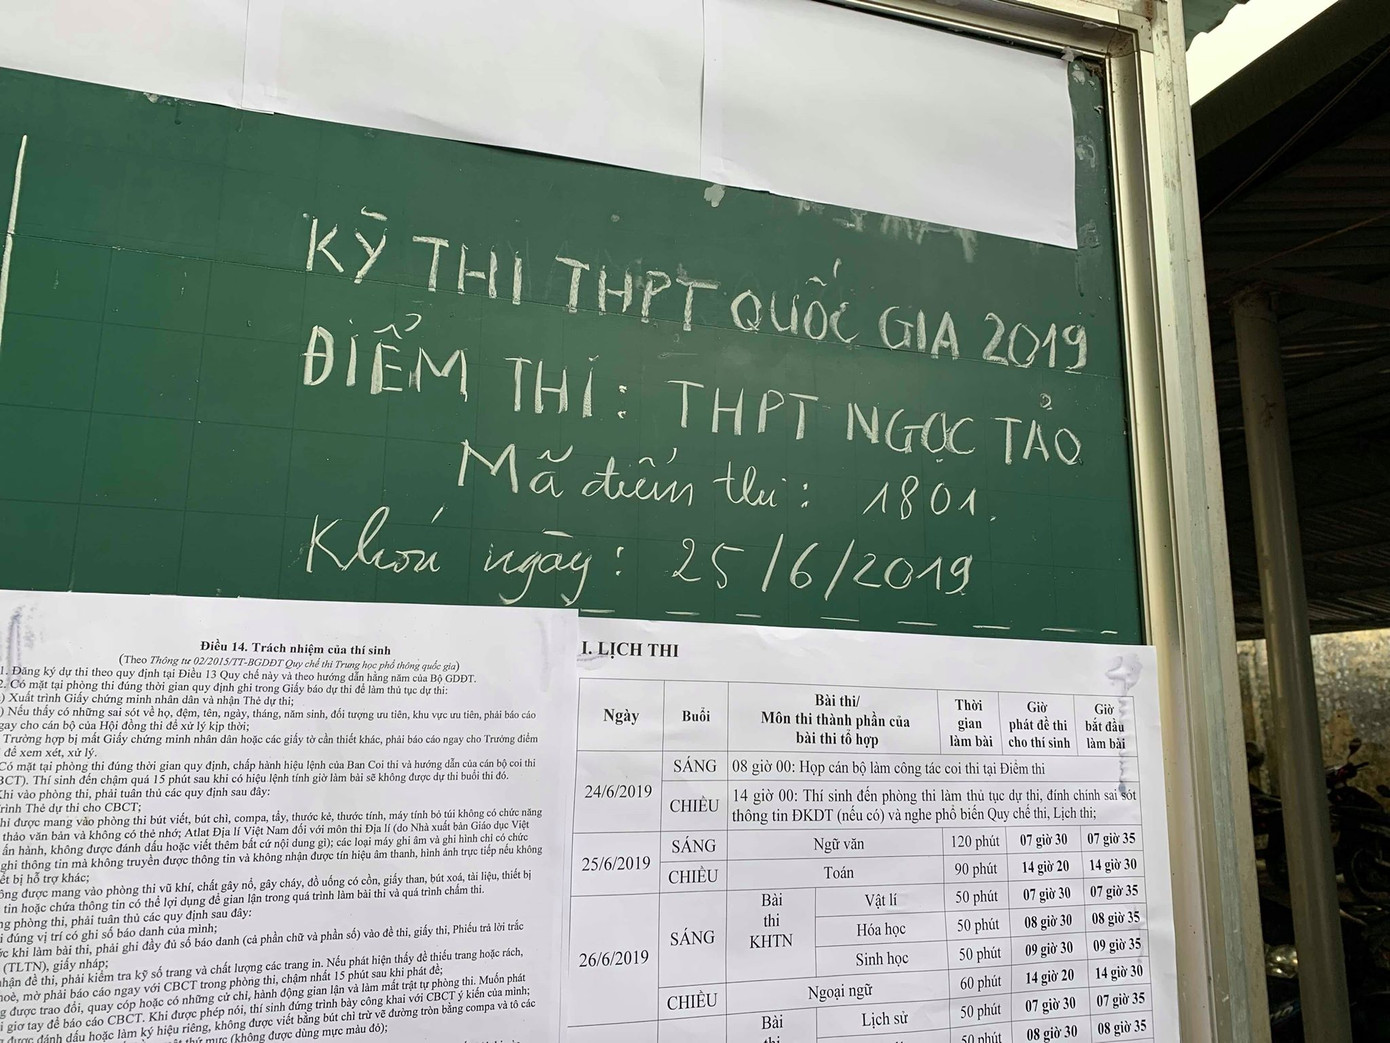 KỲ THI THPT QUỐC GIA 2019
ĐIỂM THI: THPT NGỌC TẢO
Mã điểm thi: 1801.
Khóa ngày: 25/6/2019
Điều 14. Trách nhiệm của thí sinh
(Theo Thông tư 02/2015/TT-BGDĐT Quy chế thi Trung học phổ thông quốc gia)
1. Đăng ký dự thi theo quy định tại Điều 13 Quy chế này và theo hướng dẫn hằng năm của Bộ GDĐT.
2. Có mặt tại phòng thi đúng thời gian quy định ghi trong Giấy báo dự thi để làm thủ tục dự thi:
) Xuất trình Giấy chứng minh nhân dân và nhận Thẻ dự thi;
) Nếu thấy có những sai sót về họ, đệm, tên, ngày, tháng, năm sinh, đối tượng ưu tiên, khu vực ưu tiên, phải báo cáo
gay cho cán bộ của Hội đồng thi để xử lý kịp thời;
Trường hợp bị mất Giấy chứng minh nhân dân hoặc các giấy tờ cần thiết khác, phải báo cáo ngay cho Trưởng điểm
để xem xét, xử lý.
Có mặt tại phòng thi đúng thời gian quy định, chấp hành hiệu lệnh của Ban Coi thi và hướng dẫn của cán bộ coi thi
BCT). Thí sinh đến chậm quá 15 phút sau khi có hiệu lệnh tính giờ làm bài sẽ không được dự thi buổi thi đó.
Khi vào phòng thi, phải tuân thủ các quy định sau đây:
rình Thẻ dự thi cho CBCT;
hỉ được mang vào phòng thi bút viết, bút chì, compa, tẩy, thước kẻ, thước tính, máy tính bỏ túi không có chức năng
thảo văn bản và không có thẻ nhớ; Atlat Địa lí Việt Nam đối với môn thi Địa lí (do Nhà xuất bản Giáo dục Việt
ấn hành, không được đánh dấu hoặc viết thêm bất cứ nội dung gì); các loại máy ghi âm và ghi hình chỉ có chức
ghi thông tin mà không truyền được thông tin và không nhận được tín hiệu âm thanh, hình ảnh trực tiếp nếu không
ết bị hỗ trợ khác;
ông được mang vào phòng thi vũ khí, chất gây nổ, gây cháy, đồ uống có cồn, giấy than, bút xoá, tài liệu, thiết bị
tin hoặc chứa thông tin có thể lợi dụng để gian lận trong quá trình làm bài thi và quá trình chấm thi.
ng phòng thi, phải tuân thủ các quy định sau đây:
i đúng vị trí có ghi số báo danh của mình;
ớc khi làm bài thi, phải ghi đầy đủ số báo danh (cả phần chữ và phần số) vào đề thi, giấy thi, Phiếu trả lời trắc
(TLTN), giấy nháp;
nhận đề thi, phải kiểm tra kỹ số trang và chất lượng các trang in. Nếu phát hiện thấy đề thiếu trang hoặc rách,
hoè, mờ phải báo cáo ngay với CBCT trong phòng thi, chậm nhất 15 phút sau khi phát đề;
g được trao đổi, quay cóp hoặc có những cử chỉ, hành động gian lận và làm mất trật tự phòng thi. Muốn phát
i giơ tay để báo cáo CBCT. Khi được phép nói, thí sinh đứng trình bày công khai với CBCT ý kiến của mình;
g được đánh dấu hoặc làm ký hiệu riêng, không được viết bằng bút chì trừ vẽ đường tròn bằng compa và tô các
thứ mực (không được dùng mực màu đỏ);
I. LỊCH THI
Ngày Buổi Bài thi/ Môn thi thành phần của bài thi tổ hợp Thời gian làm bài Giờ phát đề thi cho thí sinh Giờ bắt đầu làm bài
24/6/2019 SÁNG 08 giờ 00: Họp cán bộ làm công tác coi thi tại Điểm thi
CHIỀU 14 giờ 00: Thí sinh đến phòng thi làm thủ tục dự thi, đính chính sai sót
thông tin ĐKDT (nếu có) và nghe phổ biến Quy chế thi, Lịch thi;
25/6/2019 SÁNG Ngữ văn 120 phút 07 giờ 30 07 giờ 35
CHIỀU Toán 90 phút 14 giờ 20 14 giờ 30
26/6/2019 SÁNG Bài thi KHTN Vật lí 50 phút 07 giờ 30 07 giờ 35
Hóa học 50 phút 08 giờ 30 08 giờ 35
Sinh học 50 phút 09 giờ 30 09 giờ 35
CHIỀU Ngoại ngữ 60 phút 14 giờ 20 14 giờ 30
Bài thi Lịch sử 50 phút 07 giờ 30 07 giờ 35
50 phút 08 giờ 30 08 giờ 35